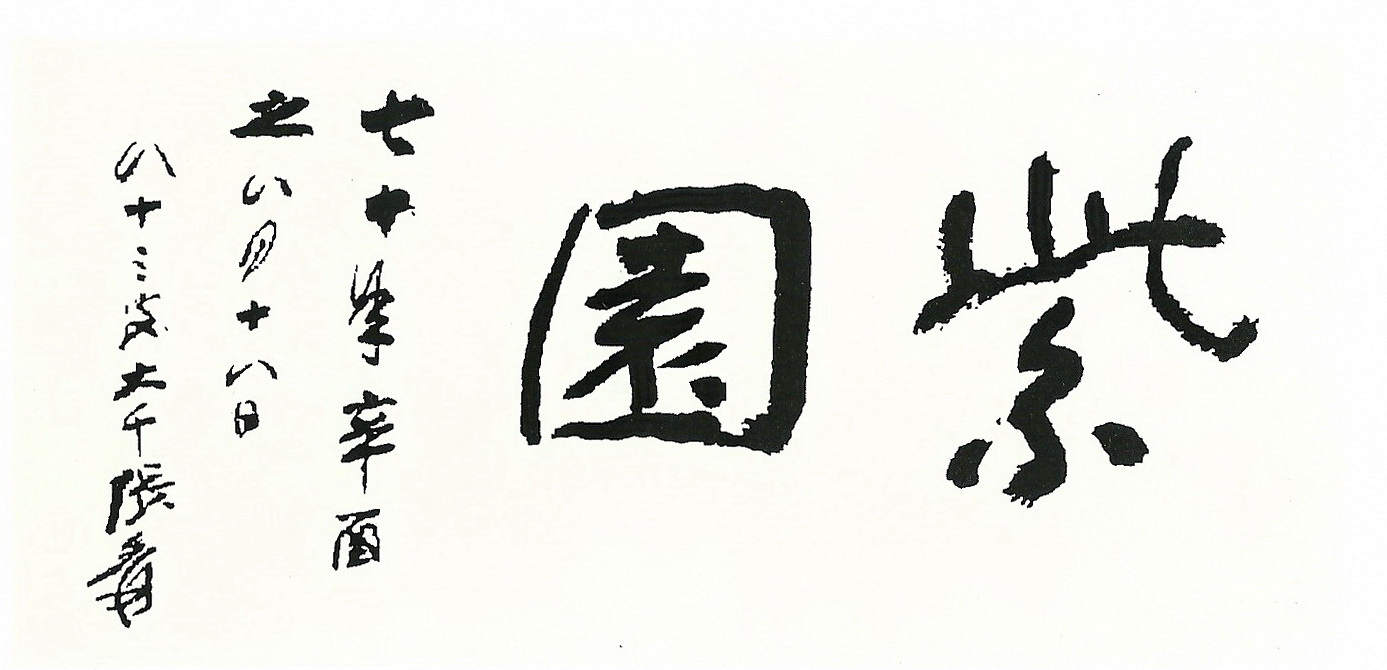 紫園
七十年辛酉
之八月十八日
八十三歲大千張爰